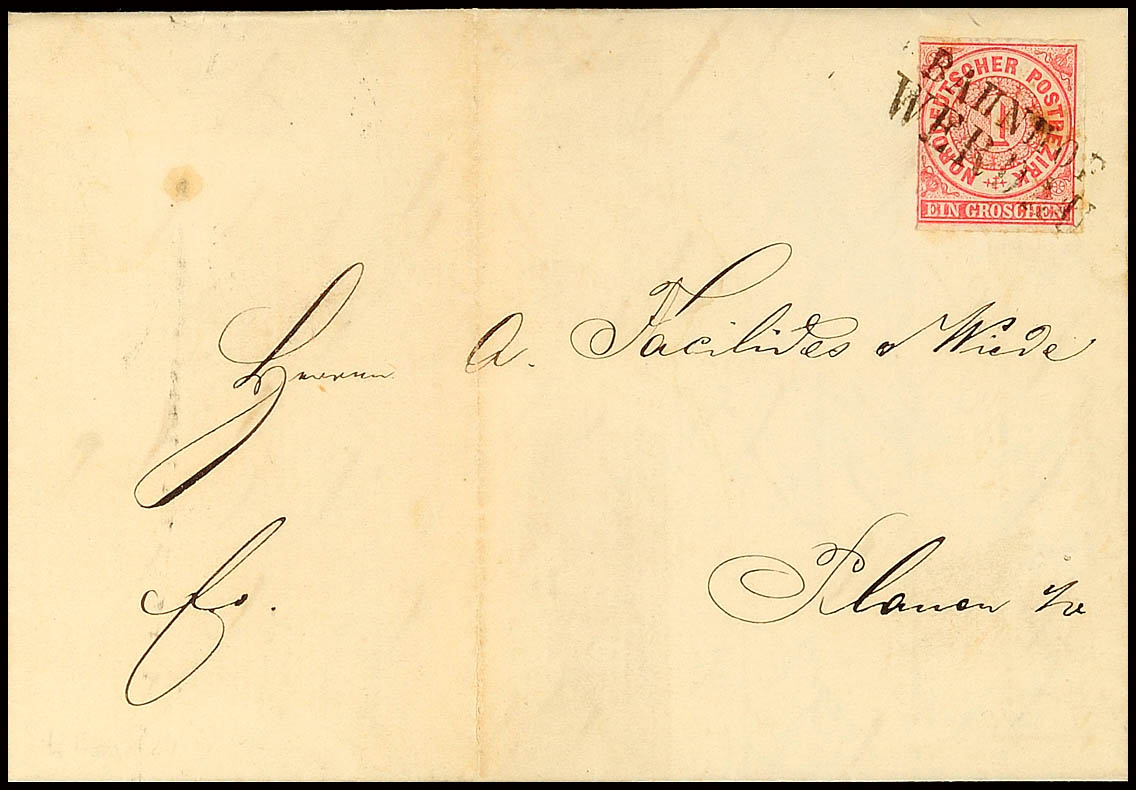 NORDDEUTSCHER POSTBEZIRK
1
EIN GROSCHEN
BAHNHOF
WERDAU
Herren A. Facilides & Wiede
fro. Plauen i/v